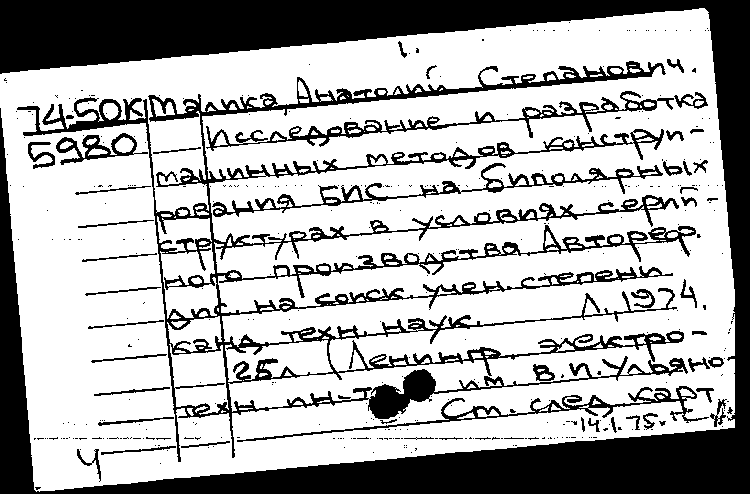 1.
74-50К Малика, Анатолий Степанович.
5980 Исследование и разработка
машинных методов конструи-
рования БИС на биполярных
структурах в условиях серий-
ного производства. Автореф.
дис. на соиск. учен. степени
канд. техн. наук. Л., 1974.
25л. (Ленингр. электро-
техн. ин-т им. В.И.Ульяно-
Ст. след карт
14.1.75.
Ч